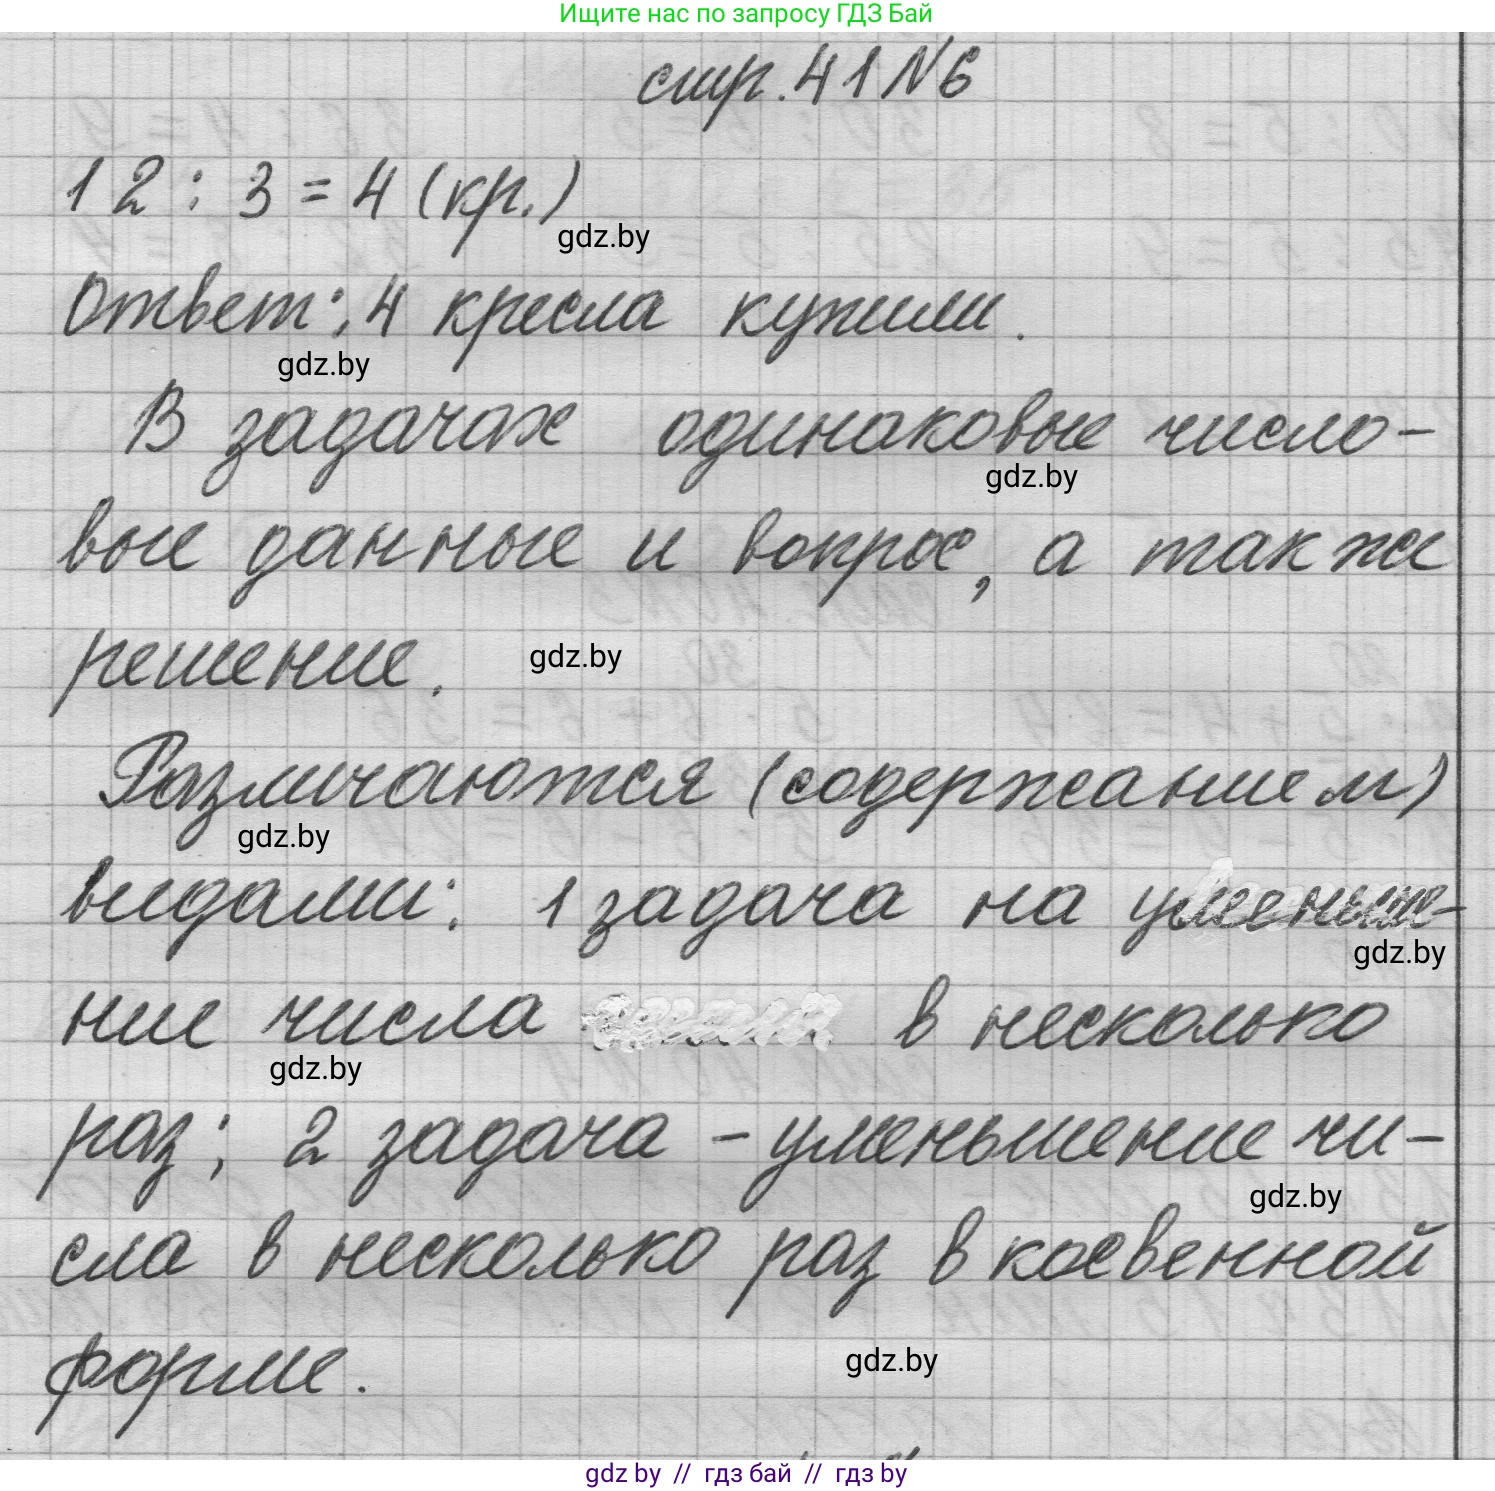 Ищите нас по запросу ГДЗ Бай
стр. 41 N 6
12 : 3 = 4 (кр.)
gdz.by
Ответ: 4 кресла купили.
gdz.by
В задачах одинаковые число-
gdz.by
вые данные и вопрос, а также
решение.
gdz.by
Различаются (содержанием)
gdz.by
видами: 1 задача на уменьше-
gdz.by
ние числа в несколько
gdz.by
раз; 2 задача - уменьшение чи-
gdz.by
сла в несколько раз в косвенной
форме.
gdz.by
gdz by // гдз бай // гдз by